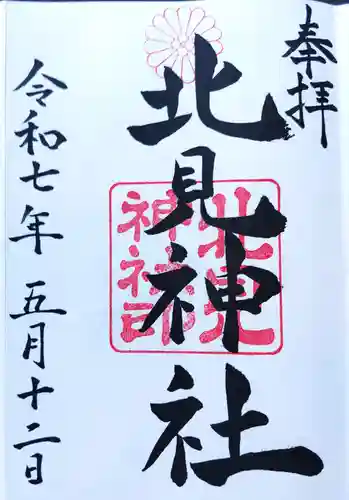 奉拝
北見神社
北見
神社印
令和七年 五月十二日